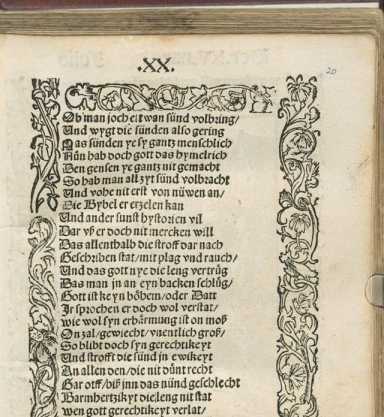 .XX.
20
Ob man joch ett wan sünd volbring/
Und wygt die sünden also gering
Das sünden ye sy gantz menschlich
Nůn hab doch gott das hymelrich
Den gensen ye gantz nit gemacht
So hab man all zyt sünd volbracht
Und vohe nit erst von nüwen an/
Die Bybel er erzelen kan
Und ander sunst hystorien vil
Dar vß er doch nit mercken will
Das allenthalb die stroff dar nach
Geschriben stat/mit plag vnd rauch/
Und das gott nye die leng vertrůg
Das man in an eyn backen schlůg/
Gott ist ke yn böhem/oder Datt
Ir sprochen er doch wol verstat/
wie wol syn erbarmung ist on moß
On zal/gewiecht/vnentlich groß/
So blibt doch syn gerechtikeyt
Und strofft die sünd jn ewikeyt
An allen den/die nit důnt recht
Gar offt/biß inn das nünd geschlecht
Barmhertzikyt die leng nit stat
wen gott gerechtikeyt verlat/